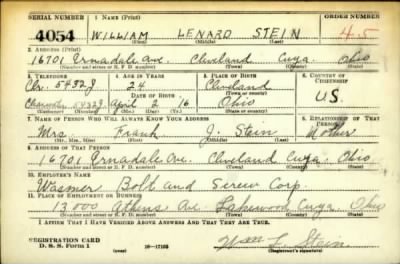 SERIAL NUMBER 1. NAME (Print) ORDER NUMBER
4054 WILLIAM LENARD STEIN 45
(First) (Middle) (Last)
2. ADDRESS (Print)
16701 Ernadale Ave. Cleveland Cuya. Ohio
(Number and street or R. F. D. number) (Town) (County) (State)
3. TELEPHONE 4. AGE IN YEARS 5. PLACE OF BIRTH 6. COUNTRY OF CITIZENSHIP
Clr. 5432J 24 Cleveland
DATE OF BIRTH (Town)
5432J April 2 16 Ohio U.S.
(Exchange) (Number) (Mo.) (Day) (Yr.) (State or country)
7. NAME OF PERSON WHO WILL ALWAYS KNOW YOUR ADDRESS 8. RELATIONSHIP OF THAT PERSON
Mrs. Frank J. Stein Mother
(Mr., Mrs., Miss) (First) (Middle) (Last)
9. ADDRESS OF THAT PERSON
16701 Ernadale Ave. Cleveland Cuya. Ohio
(Number and street or R. F. D. number) (Town) (County) (State)
10. EMPLOYER'S NAME
Wasmer Bolt and Screw Corp.
11. PLACE OF EMPLOYMENT OR BUSINESS
13000 Athens Ave Lakewood Cuya Ohio
(Number and street or R. F. D. number) (Town) (County) (State)
I AFFIRM THAT I HAVE VERIFIED ABOVE ANSWERS AND THAT THEY ARE TRUE.
REGISTRATION CARD
D. S. S. Form 1 16-17105 Wm L. Stein
(Registrant's signature)